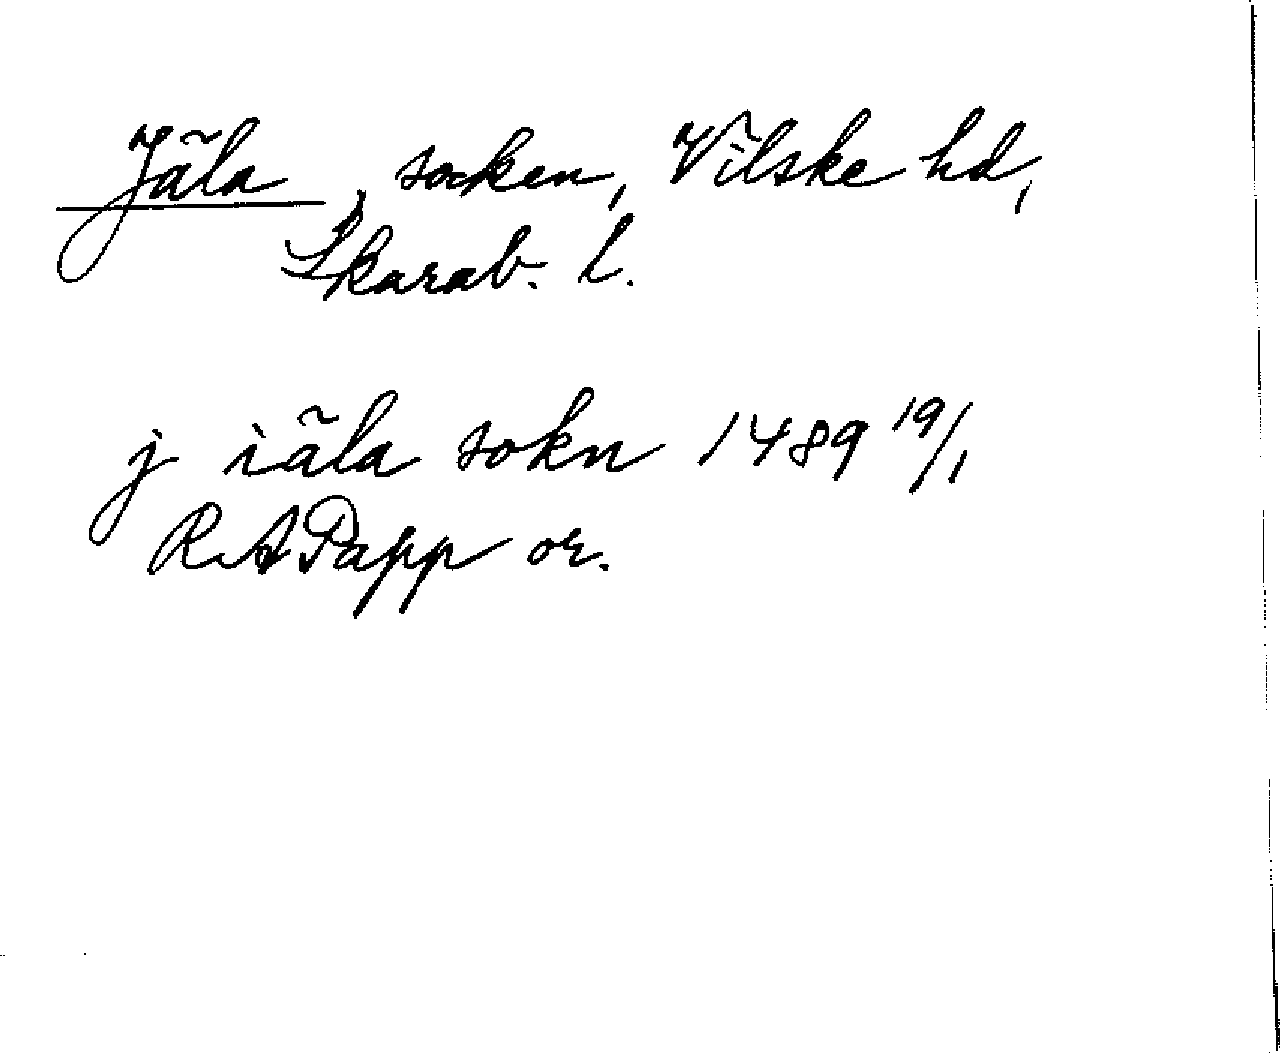 Jäla, socken, Vilske hd,
Skarab. l.
j iäla sokn 1489 19/1
RAPapp or.